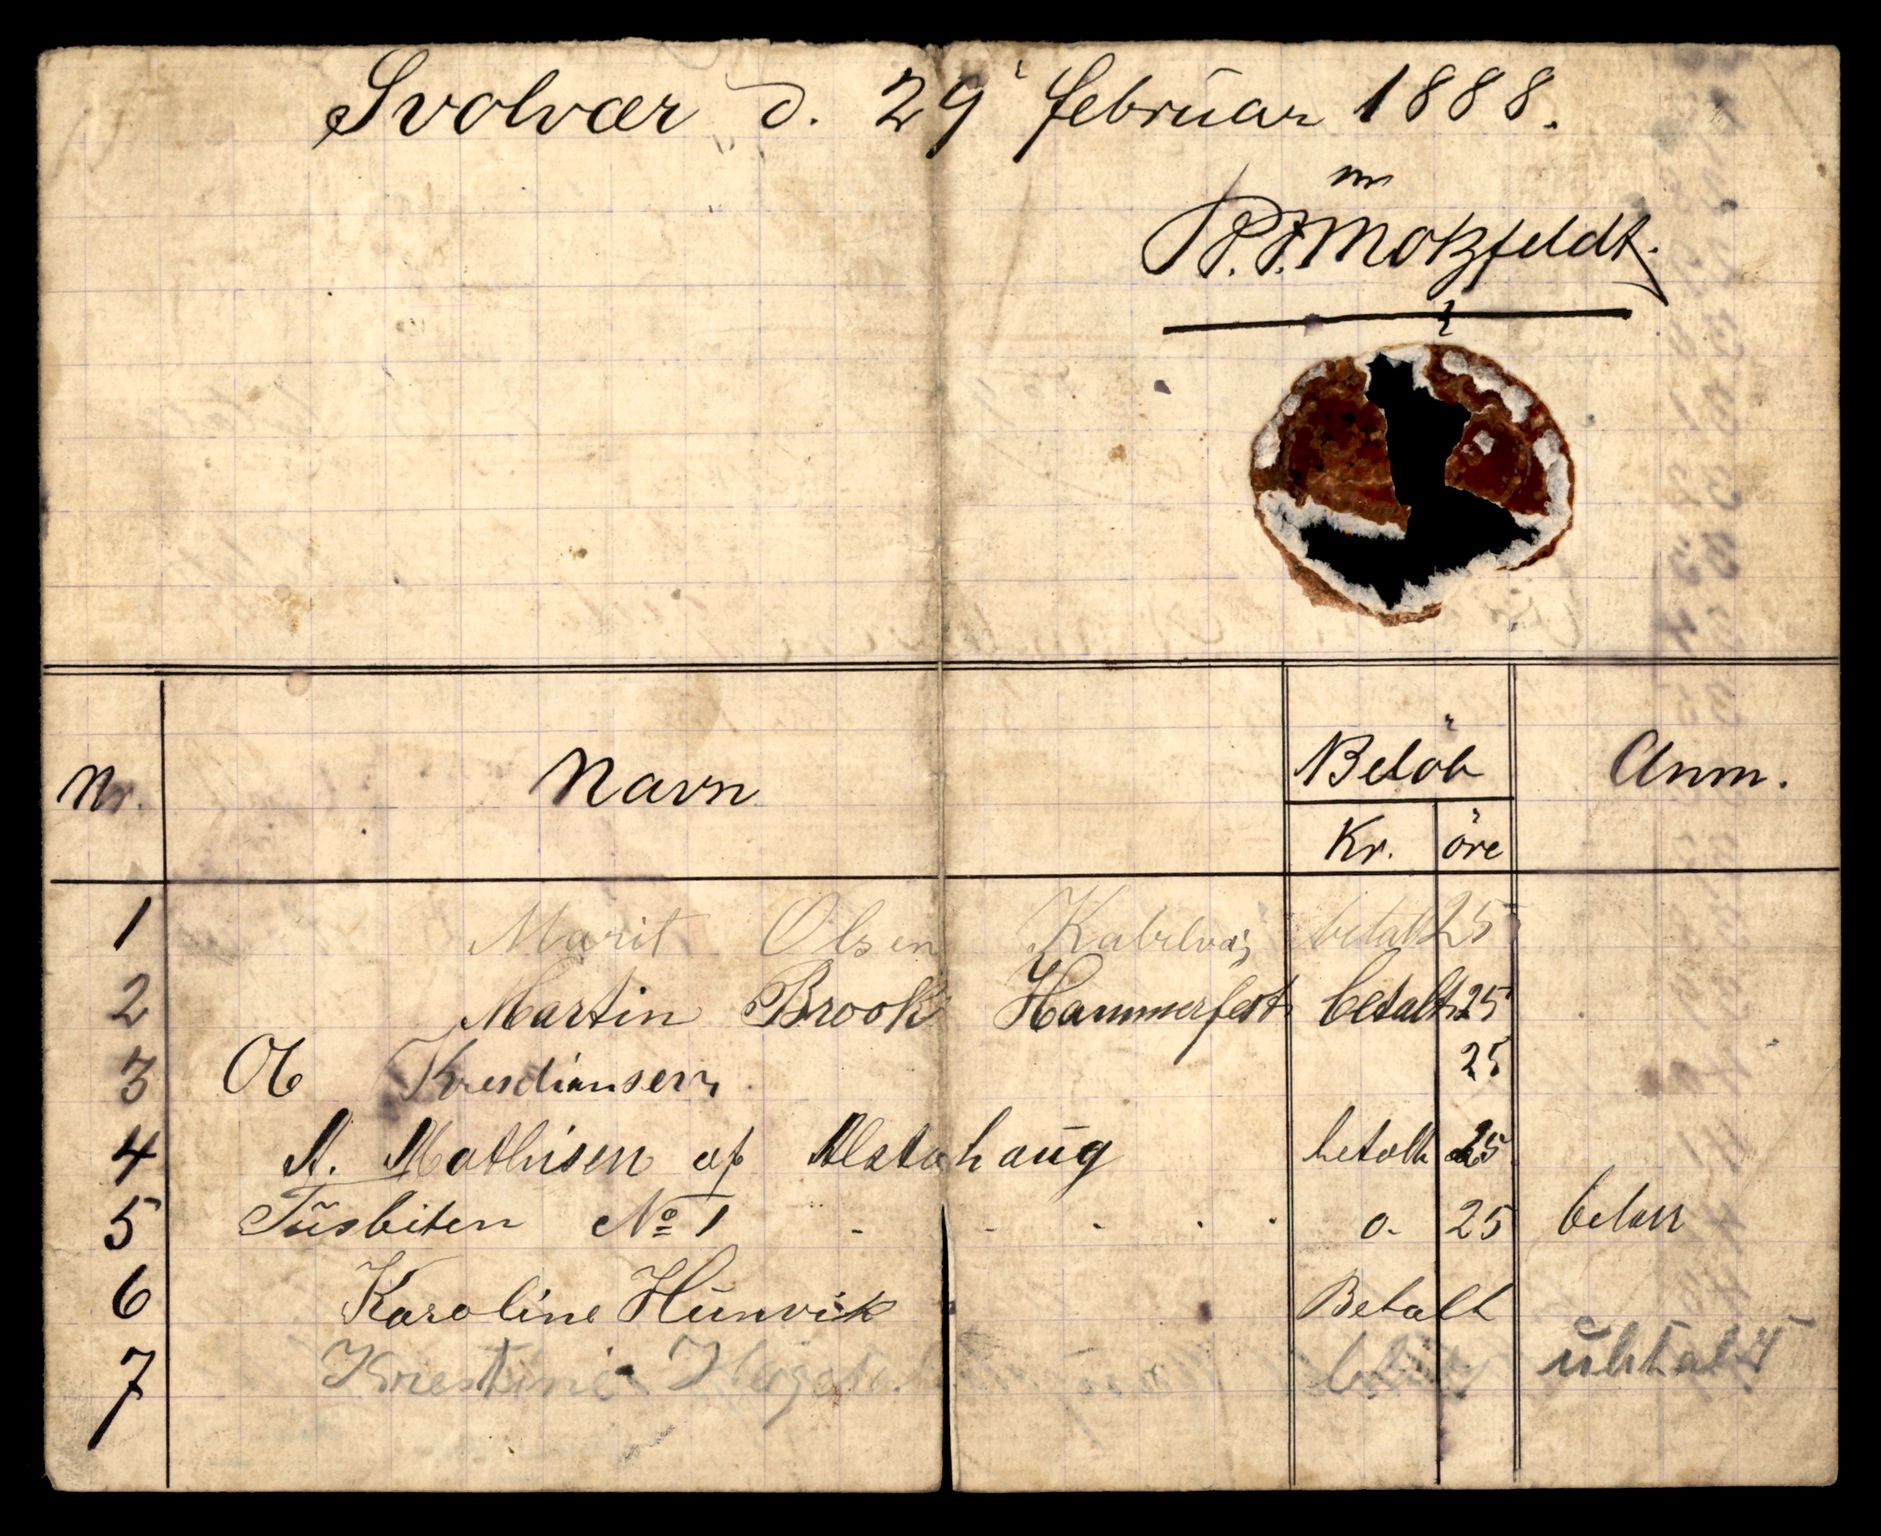 Svolvær d. 29 februar 1888.
P. F. Motzfeldt.
Nr. Navn Belöb Anm.
Kr. öre
1 Marit Olsen Kabelvaag betalt 25
2 Martin Brook Hammerfest betalt 25
3 Ol Kresdiansen 25
4 A. Mathisen af Alstahaug betalt 25
5 Tusbiten No 1 - - - - - 0. 25
6 Karoline Hunvik Betalt
7 Krestine ubtalt